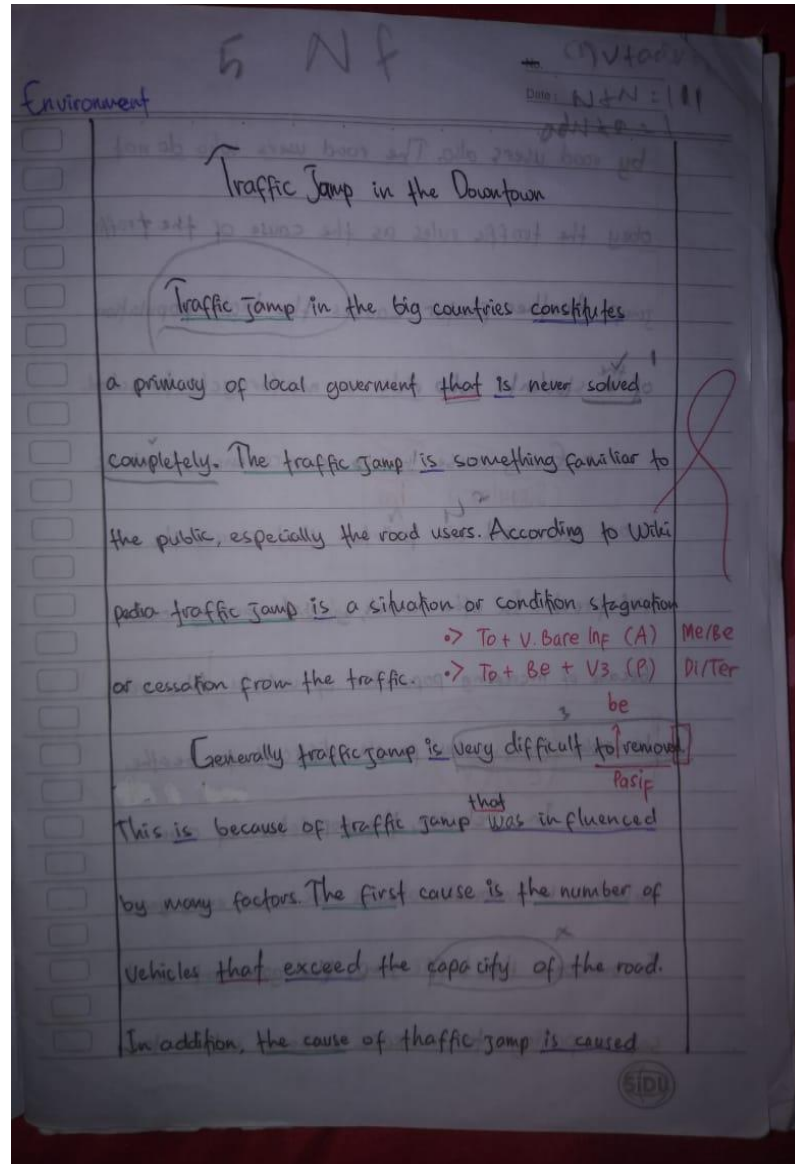 5 N f
Environment
Date: N+N = 111
Traffic Jamp in the Downtown
Traffic Jamp in the big countries constitutes
a primary of local goverment that is never solved 1
completely. The traffic jamp is something familiar to
the public, especially the road users. According to Wiki
pedia traffic jamp is a situation or condition stagnation
•> To + V. Bare Inf (A) Me/Be
or cessation from the traffic. •> To + Be + V3 (P) Di/Ter
be
Generally traffic jamp is very difficult to remove
Pasif
that
This is because of traffic jamp was influenced
by many factors. The first cause is the number of
vehicles that exceed the capacity of the road.
In addition, the cause of thaffic jamp is caused
SIDU